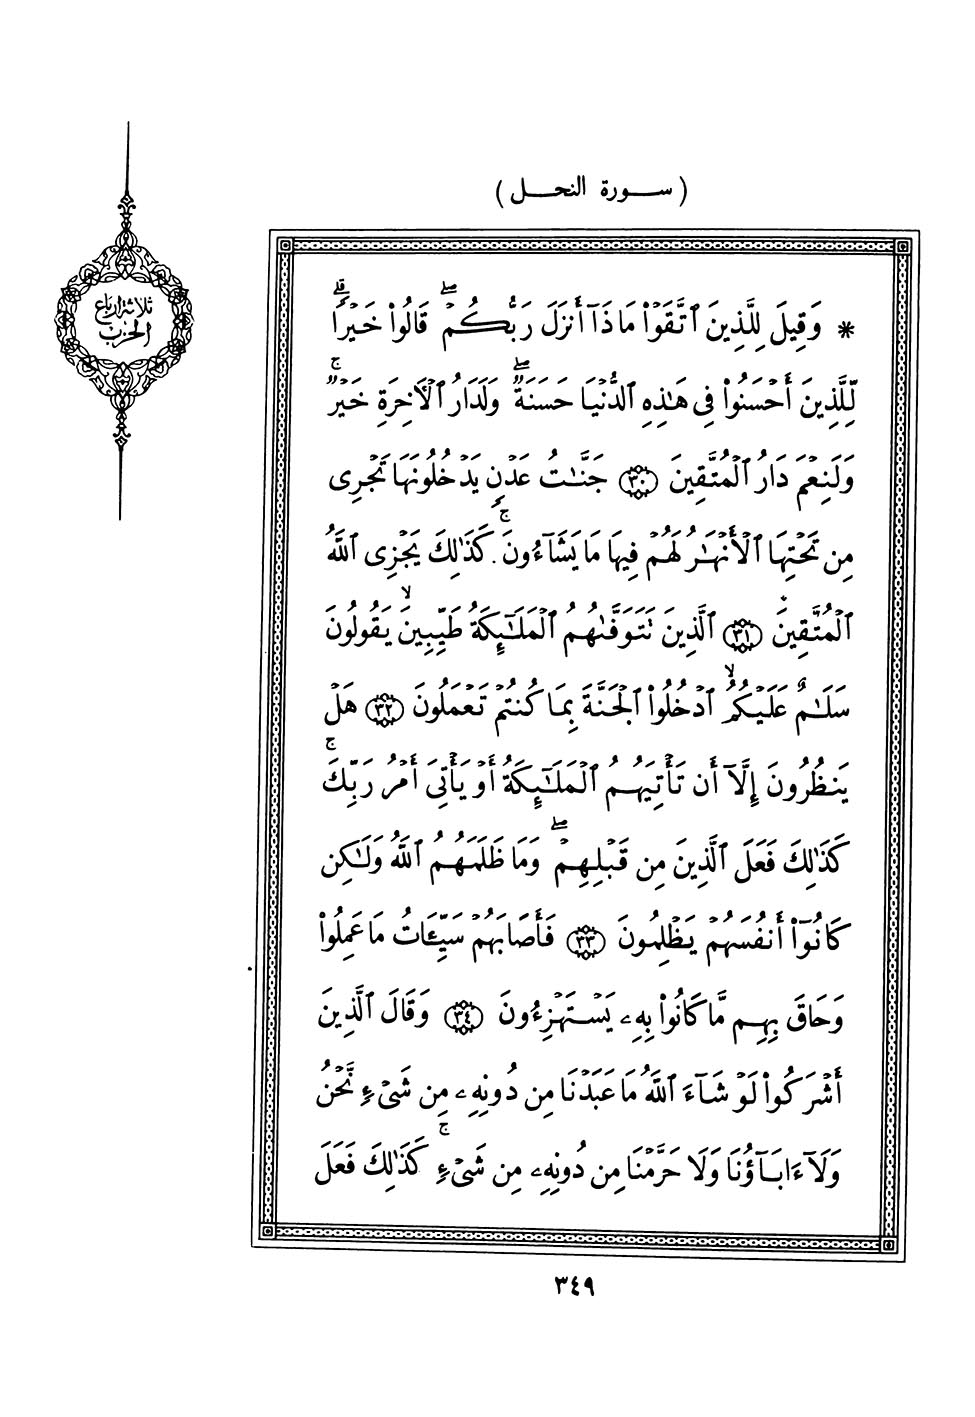 ( سورة النحل )
ثلاثة ارباع
الحزب
* وَقِيلَ لِلَّذِينَ ٱتَّقَوْاْ مَاذَآ أَنزَلَ رَبُّكُمْ ۖ قَالُواْ خَيْرًا ۗ
لِّلَّذِينَ أَحْسَنُواْ فِى هَـٰذِهِ ٱلدُّنْيَا حَسَنَةٌ ۖ وَلَدَارُ ٱلْأَخِرَةِ خَيْرٌ ۚ
وَلَنِعْمَ دَارُ ٱلْمُتَّقِينَ ﴿٣٠﴾ جَنَّـٰتُ عَدْنٍ يَدْخُلُونَهَا تَجْرِى
مِن تَحْتِهَا ٱلْأَنْهَـٰرُ لَهُمْ فِيهَا مَا يَشَآءُونَ ۚ كَذَٰلِكَ يَجْزِى ٱللَّهُ
ٱلْمُتَّقِينَ ﴿٣١﴾ ٱلَّذِينَ تَتَوَفَّـٰهُمُ ٱلْمَلَـٰٓئِكَةُ طَيِّبِينَ ۙ يَقُولُونَ
سَلَـٰمٌ عَلَيْكُمُ ۙ ٱدْخُلُواْ ٱلْجَنَّةَ بِمَا كُنتُمْ تَعْمَلُونَ ﴿٣٢﴾ هَلْ
يَنظُرُونَ إِلَّآ أَن تَأْتِيَهُمُ ٱلْمَلَـٰٓئِكَةُ أَوْ يَأْتِىَ أَمْرُ رَبِّكَ ۚ
كَذَٰلِكَ فَعَلَ ٱلَّذِينَ مِن قَبْلِهِمْ ۖ وَمَا ظَلَمَهُمُ ٱللَّهُ وَلَـٰكِن
كَانُوٓاْ أَنفُسَهُمْ يَظْلِمُونَ ﴿٣٣﴾ فَأَصَابَهُمْ سَيِّـَٔاتُ مَا عَمِلُواْ
وَحَاقَ بِهِم مَّا كَانُواْ بِهِۦ يَسْتَهْزِءُونَ ﴿٣٤﴾ وَقَالَ ٱلَّذِينَ
أَشْرَكُواْ لَوْ شَآءَ ٱللَّهُ مَا عَبَدْنَا مِن دُونِهِۦ مِن شَىْءٍ نَّحْنُ
وَلَآ ءَابَآؤُنَا وَلَا حَرَّمْنَا مِن دُونِهِۦ مِن شَىْءٍ ۚ كَذَٰلِكَ فَعَلَ
٣٤٩